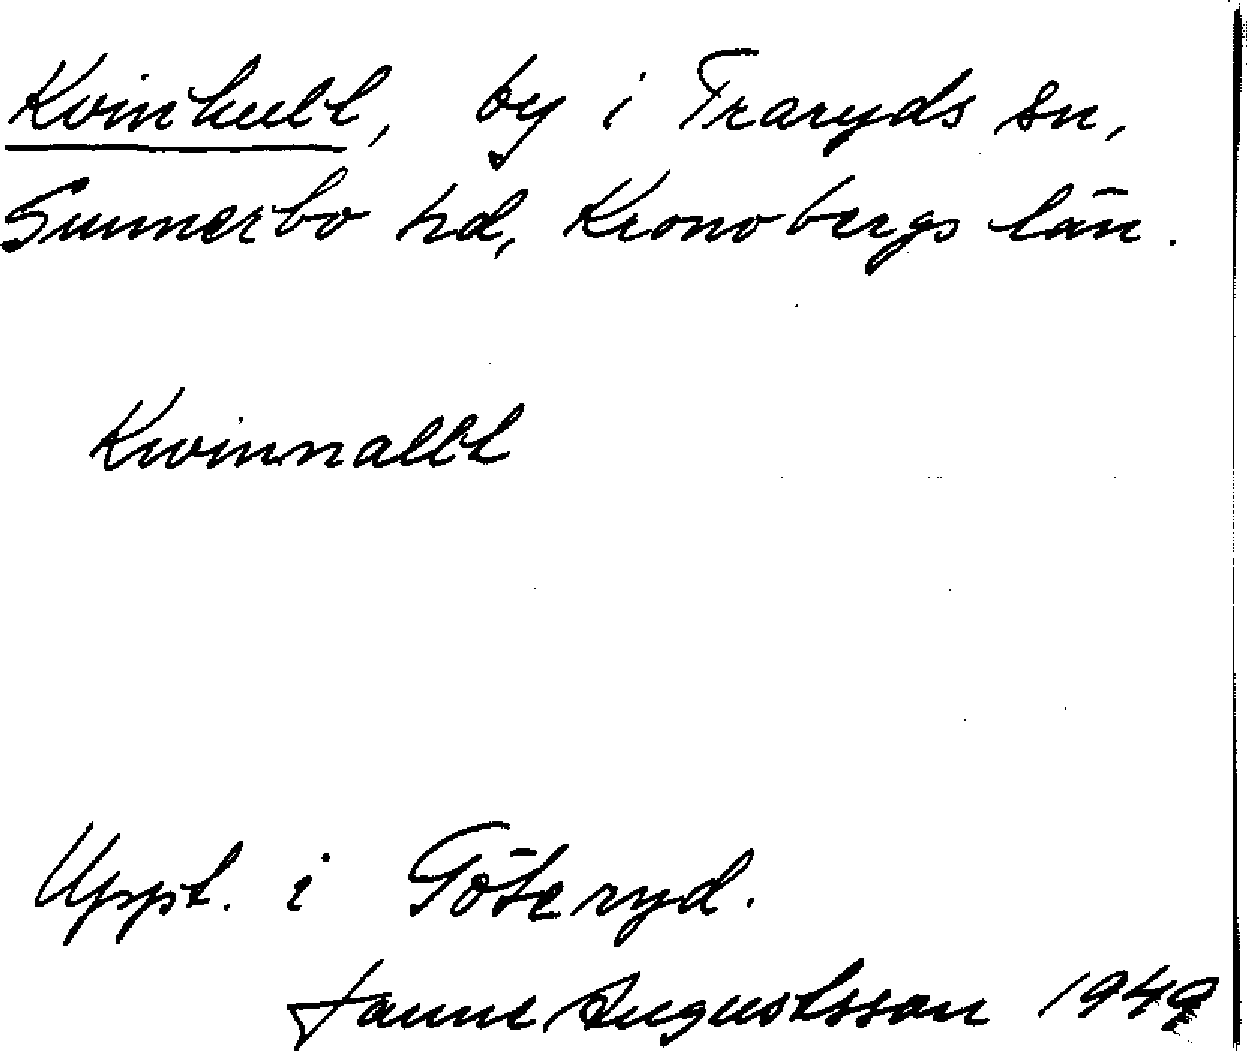 Kvinhult, by i Traryds sn,
Sunnerbo hd, Kronobergs län.
Kwinnallt
Uppt. i Göteryd.
Janne Augustsson 1949